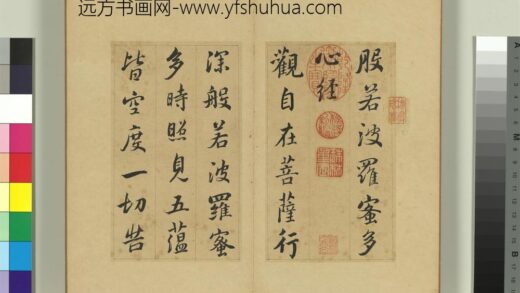 远方书画网-www.yfshuhua.com
般若波羅蜜多
心経
觀自在菩薩行
深般若波羅蜜
多時照見五蘊
皆空度一切苦